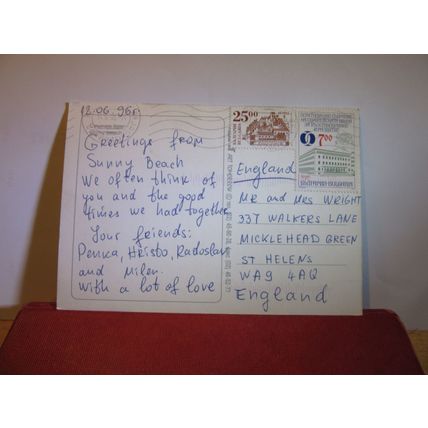 12.06.96г.
Greetings from
Sunny Beach
We often think of
you and the good
times we had together
Your friends:
Penka, Hristo, Radoslav
and Milen.
With a lot of love
25.00
7.00
England
MR and MRS WRIGHT
337 WALKERS LANE
MICKLEHEAD GREEN
ST HELENS
WA9 4AQ
England